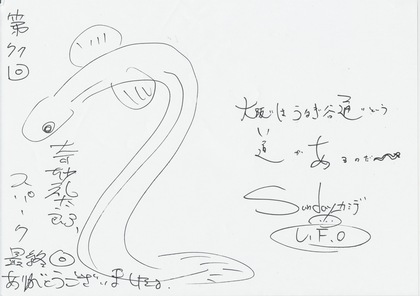 第77回
吉田紗太郎、
スパーク
最終回
ありがとうございました。
大阪にはうなぎ谷通という
い道が
あるのだ〜
Sundayカミデ
U.F.O